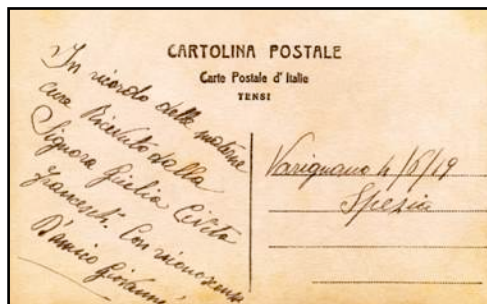 CARTOLINA POSTALE
Carte Postale d' Italie
TENSI
In ricordo delle materne
cure Ricevuto dalla
Signora Giulia Civita
Franceschi. Con riconoscenza
D'amico Giovanni
Varignano 4/6/19
Spezia